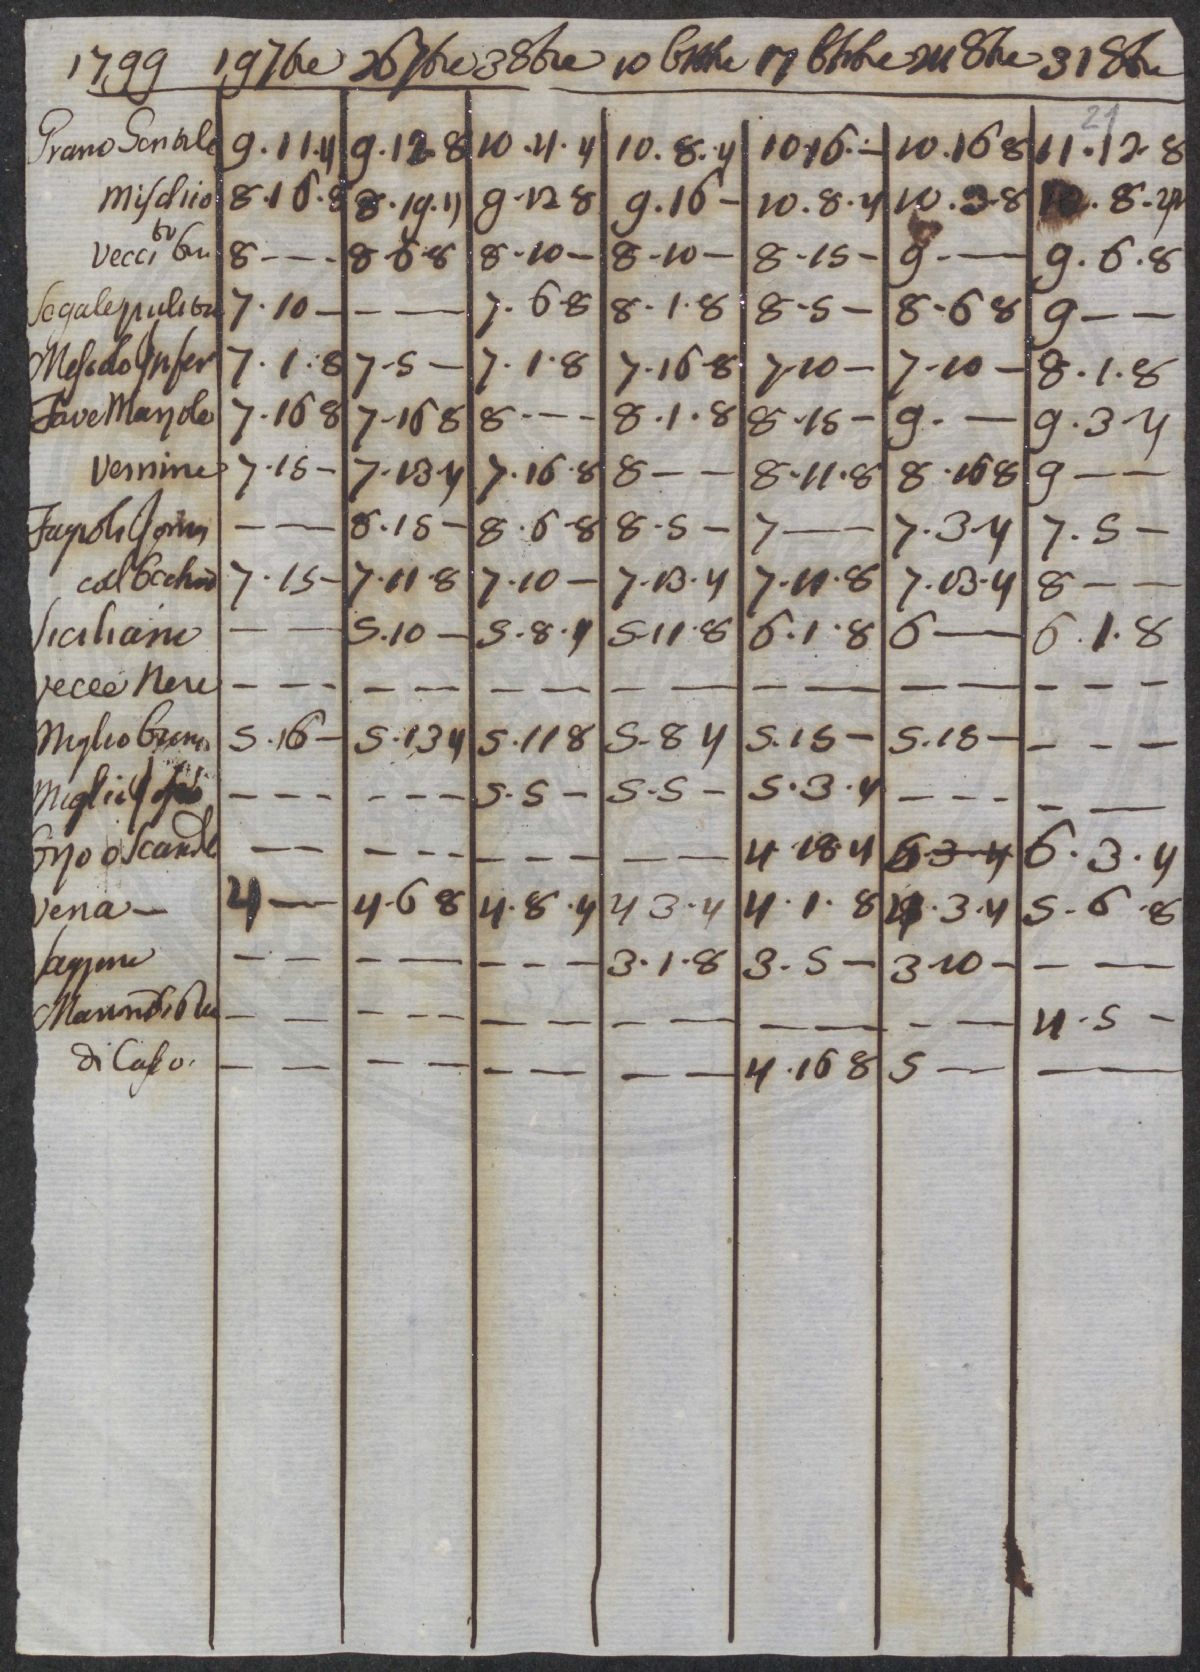 1799 19 7bre 26 7bre 3 8bre 10 8bre 17 8bre 24 8bre 31 8bre
21
Grano Gentile 9.11.4 9.12.8 10.4.4 10.8.4 10.16.— 10.16 8 11.12.8
Mischio 8.16.8 8.19.11 9.12 8 9.16 — 10.8.4 10.3.8 10.8.4
Vecci 8 - - - 8 6 8 8-10- 8-10- 8-15- 9. — 9.6.8
Segale pulita 7.10 — - — 7.6 8 8.1.8 8-5- 8-6 8 9 — —
7.1.8 7-5- 7.1.8 7.16 8 7-10- 7-10- 8.1.8
Fave 7.16 8 7-16 8 8 - - - 8.1.8 8-15- 9. — 9.3.4
Vernine 7.15- 7.13.4 7.16.8 8 — — 8.11.8 8.16 8 9 — —
- — 8.15- 8.6.8 8-5- 7 — 7.3.4 7.5-
coll Occhio 7.15- 7.11.8 7.10- 7.13.4 7.11.8 7.13.4 8 — —
Siciliane — — 5.10- 5.8.4 5.11.8 6.1.8 6 — 6.1.8
Vecce Nere - - - - - - - - - - — - — — — - - -
Miglio 5.16- 5.13 4 5.11 8 5.8 4 5.15- 5.15- - - -
Miglio - - - - - - 5-5- 5-5- 5.3.4 - - - - —
o Scandella — — - - - - - - - — — 4.18.4 6 3 4 6.3.4
Vena — 4 — 4.6 8 4.8.4 4 3.4 4.1.8 4.3.4 5.6.8
Saggina - - - - — - - - 3.1.8 3.5- 3 10- - —
— — - - - — — - - — — — - - — 4.5-
di Caso. — — - - — - — — — — 4.16 8 5 — —